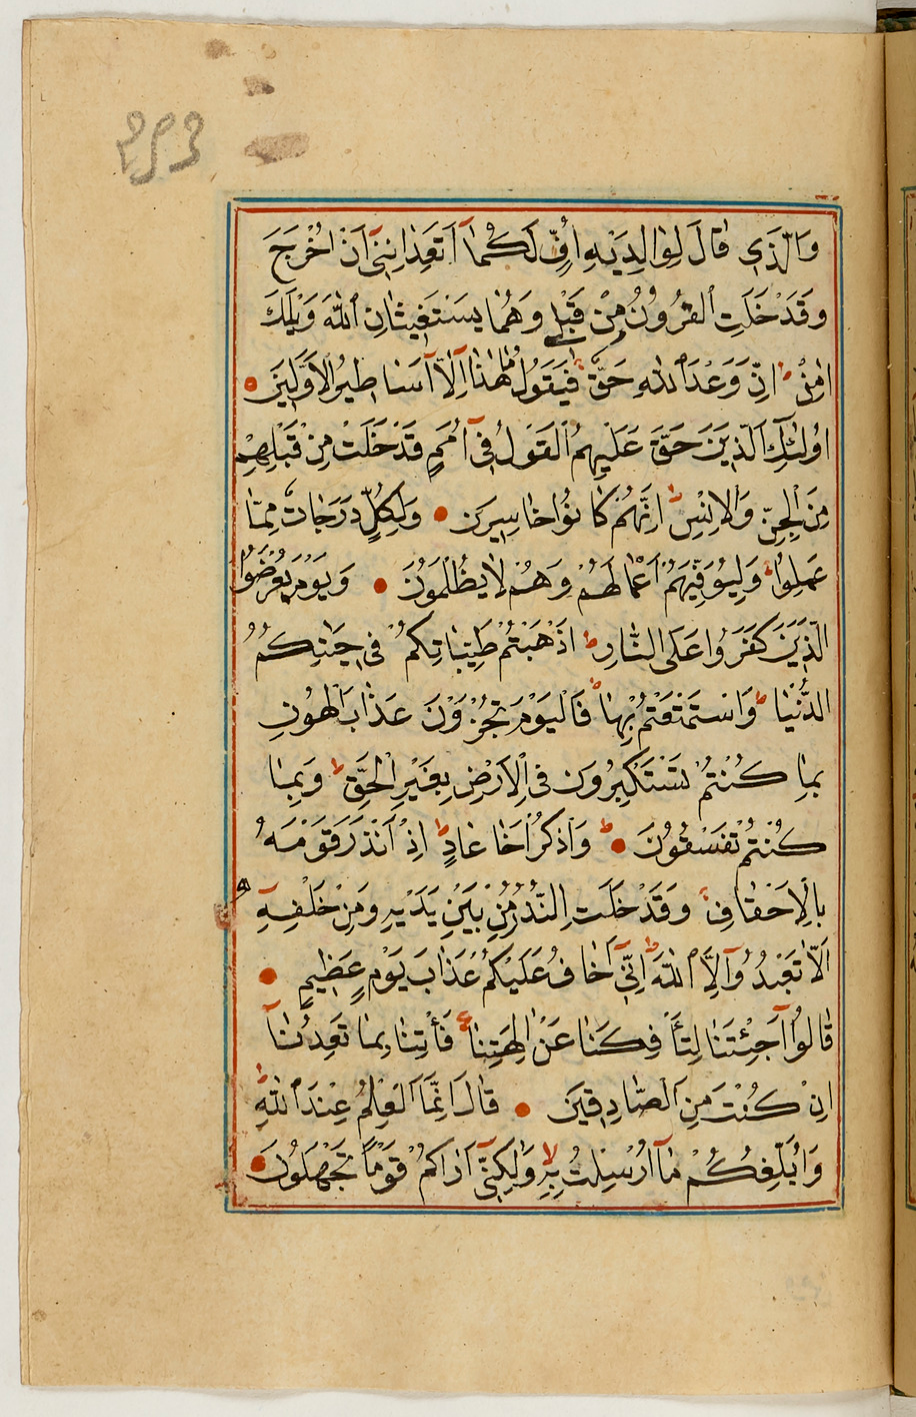 ٢٥٣
وَالَّذِي قَالَ لِوَالِدَيْهِ اُفٍّ لَكُمَا اَتَعِدَانِنِي اَنْ اُخْرَجَ
وَقَدْ خَلَتِ الْقُرُونُ مِنْ قَبْلِي وَهُمَا يَسْتَغِيثَانِ اللهَ وَيْلَكَ
اٰمِنْ اِنَّ وَعْدَ اللهِ حَقٌّ فَيَقُولُ مَا هٰذَا اِلَّا اَسَاطِيرُ الْاَوَّلِينَ
اُولٰئِكَ الَّذِينَ حَقَّ عَلَيْهِمُ الْقَوْلُ فِي اُمَمٍ قَدْ خَلَتْ مِنْ قَبْلِهِمْ
مِنَ الْجِنِّ وَالْاِنْسِ اِنَّهُمْ كَانُوا خَاسِرِينَ وَلِكُلٍّ دَرَجَاتٌ مِمَّا
عَمِلُوا وَلِيُوَفِّيَهُمْ اَعْمَالَهُمْ وَهُمْ لَا يُظْلَمُونَ وَيَوْمَ يُعْرَضُ
الَّذِينَ كَفَرُوا عَلَى النَّارِ اَذْهَبْتُمْ طَيِّبَاتِكُمْ فِي حَيٰوتِكُمُ
الدُّنْيَا وَاسْتَمْتَعْتُمْ بِهَا فَالْيَوْمَ تُجْزَوْنَ عَذَابَ الْهُونِ
بِمَا كُنْتُمْ تَسْتَكْبِرُونَ فِي الْاَرْضِ بِغَيْرِ الْحَقِّ وَبِمَا
كُنْتُمْ تَفْسُقُونَ وَاذْكُرْ اَخَا عَادٍ اِذْ اَنْذَرَ قَوْمَهُ
بِالْاَحْقَافِ وَقَدْ خَلَتِ النُّذُرُ مِنْ بَيْنِ يَدَيْهِ وَمِنْ خَلْفِهِ
اَلَّا تَعْبُدُوا اِلَّا اللهَ اِنِّي اَخَافُ عَلَيْكُمْ عَذَابَ يَوْمٍ عَظِيمٍ
قَالُوا اَجِئْتَنَا لِتَاْفِكَنَا عَنْ اٰلِهَتِنَا فَاْتِنَا بِمَا تَعِدُنَا
اِنْ كُنْتَ مِنَ الصَّادِقِينَ قَالَ اِنَّمَا الْعِلْمُ عِنْدَ اللهِ
وَاُبَلِّغُكُمْ مَا اُرْسِلْتُ بِهِ وَلٰكِنِّي اَرَاكُمْ قَوْمًا تَجْهَلُونَ